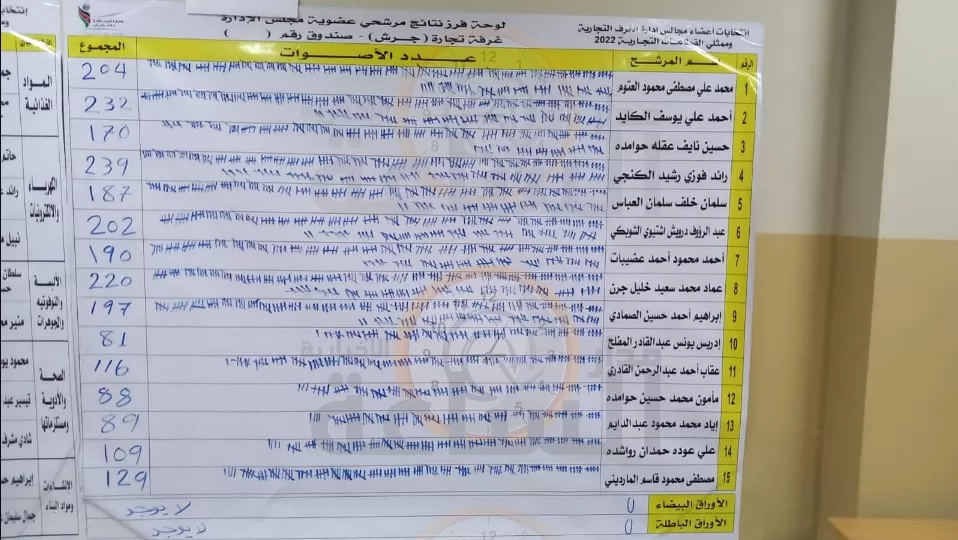 انتخابات أعضاء مجالس إدارة الغرف التجارية
وممثلي القطاعات التجارية 2022
لوحة فرز نتائج مرشحي عضوية مجلس الإدارة
غرفة تجارة (جرش) - صندوق رقم ( )
الرقم اسم المرشح عدد الأصوات المجموع
1 محمد علي مصطفى محمود العتوم 204
2 أحمد علي يوسف الكايد 232
3 حسين نايف عقله حوامده 170
4 رائد فوزي رشيد الكنجي 239
5 سلمان خلف سلمان العباس 187
6 عبد الرؤوف درويش اشتيوي الشوبكي 202
7 أحمد محمود أحمد عضيبات 190
8 عماد محمد سعيد خليل جرن 220
9 ابراهيم أحمد حسين الصمادي 197
10 إدريس يونس عبدالقادر المفلح 81
11 عقاب أحمد عبدالرحمن القادري 116
12 مأمون محمد حسين حوامده 88
13 إياد محمد محمود عبدالدايم 89
14 علي عوده حمدان رواشده 109
15 مصطفى محمود قاسم المارديني 129
الأوراق البيضاء 0 لا يوجد
الأوراق الباطلة 0 لا يوجد
المواد
الغذائية
الكهرباء
والالكترونيات
الألبسة
والنوفوتيه
والمجوهرات
الصحة
والأدوية
ومستلزماتها
الانشاءات
ومواد البناء